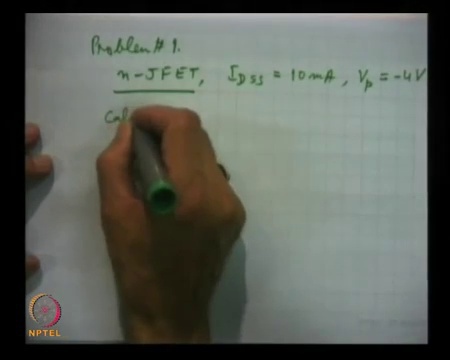 Problem # 1.
n-JFET, I_DSS = 10 mA, V_p = -4V
Cal
NPTEL